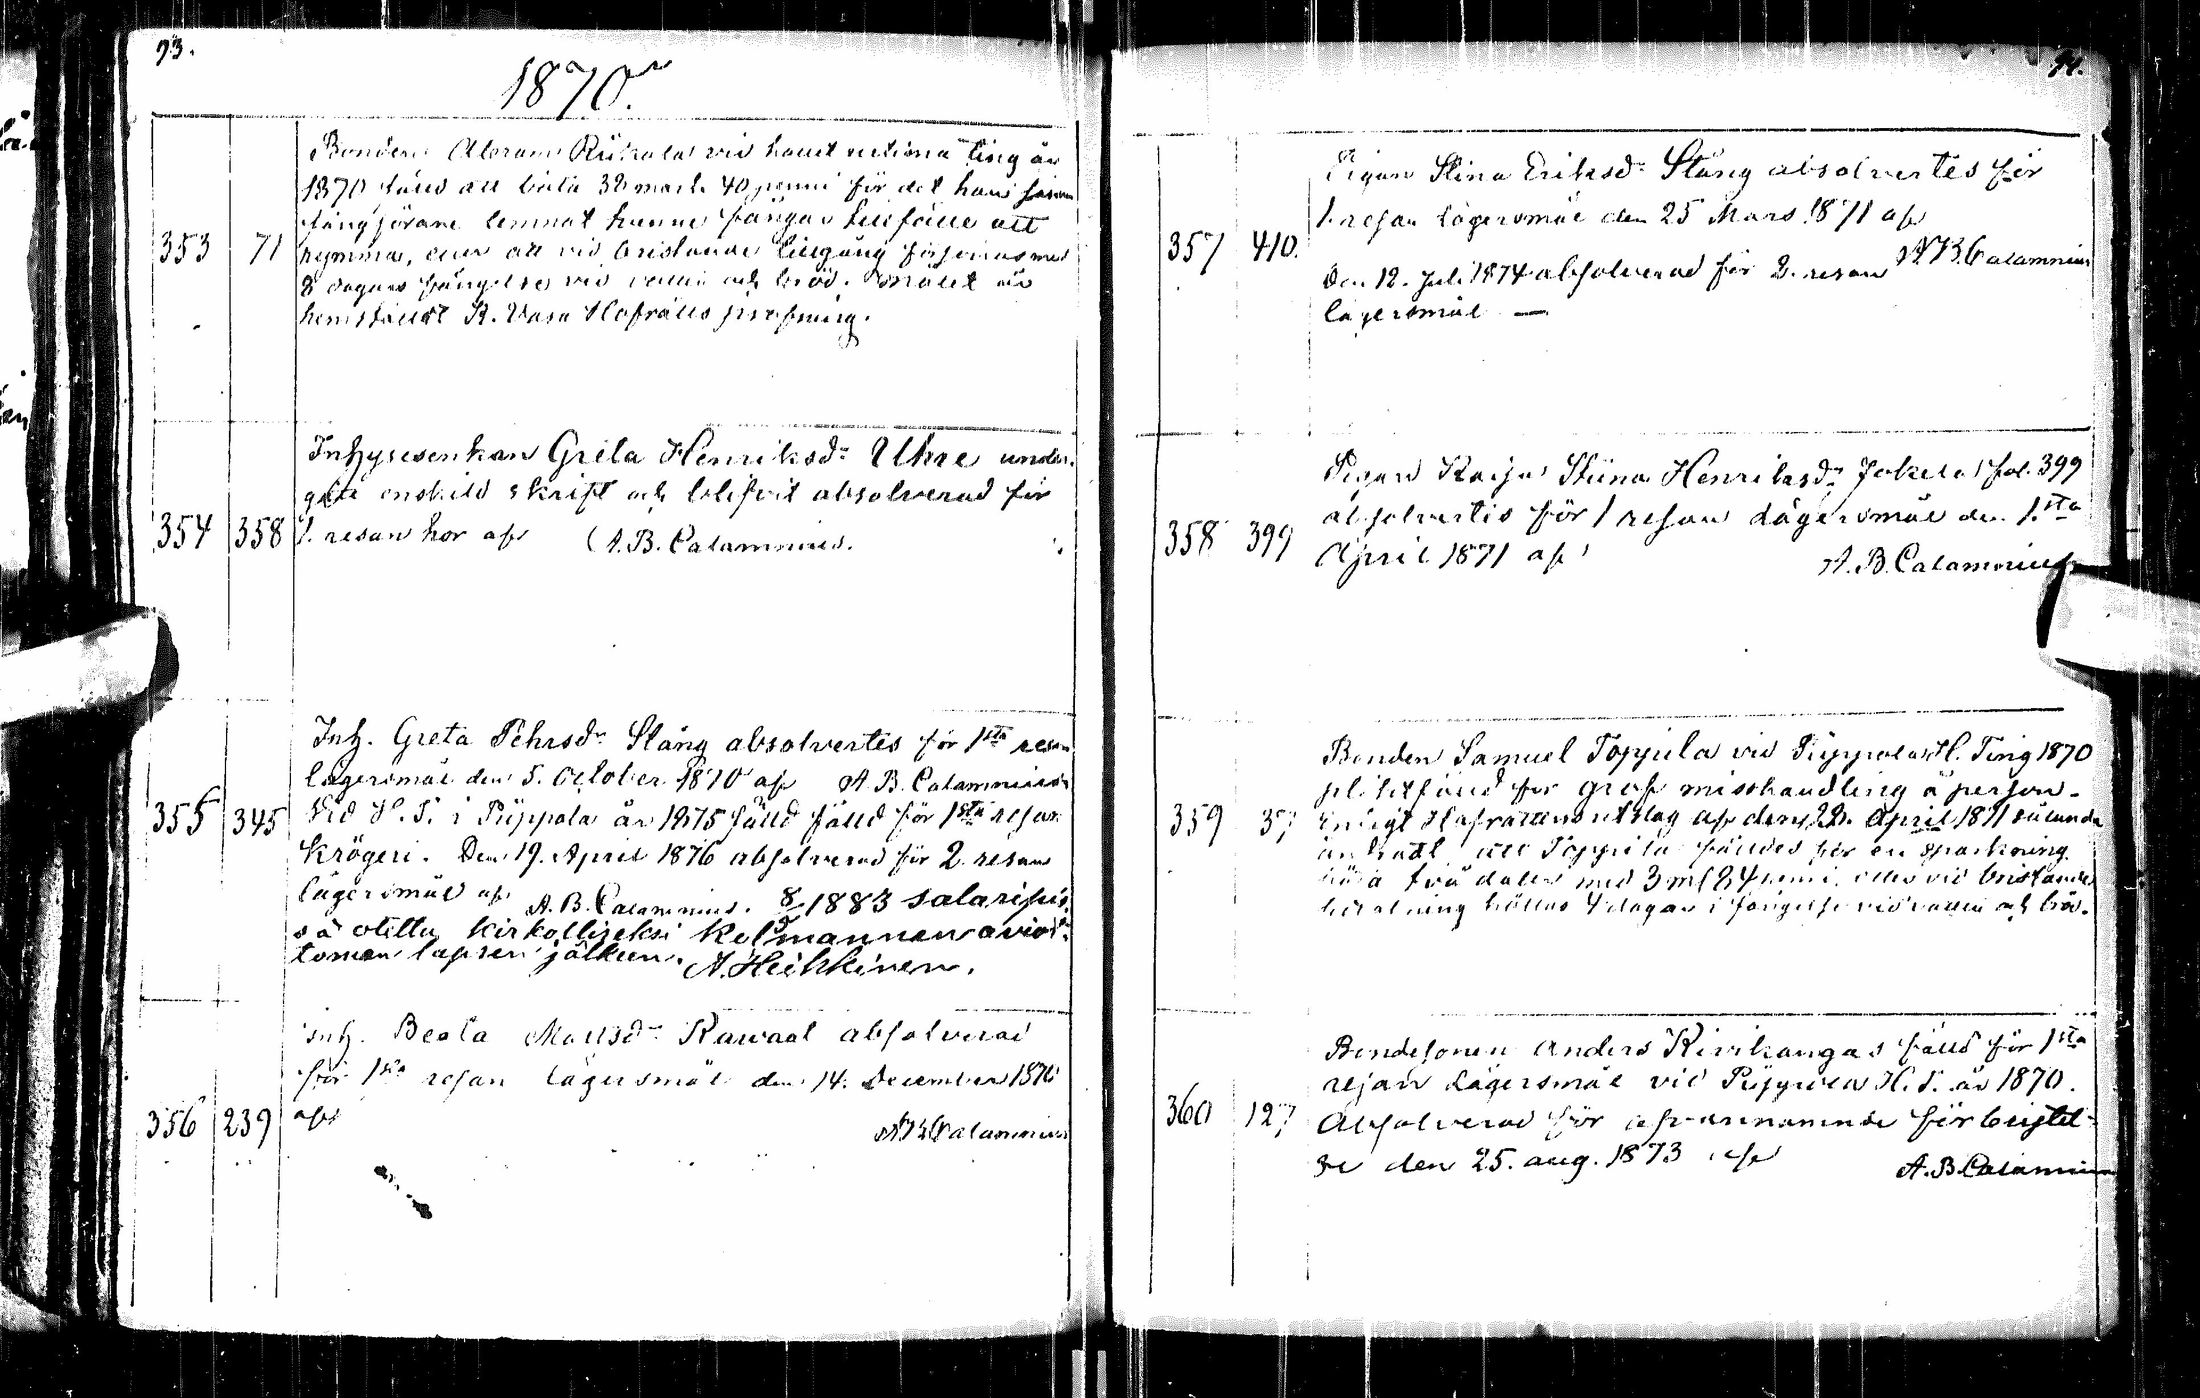 93.
1870.
353 71
Bonden Abram Riihola vid hållit vid ting år
1870 fälld att böta 38 mark 40 penni för det han såsom
fångförare lemnat fången tillfälle att
rymma, eller att vid bristande tillgång försonas med
8 dagars fängelse vid vatten och bröd. Målet är
hemstäldt K. Vasa Hofrätts pröfning.
354 358
Inhysesenkan Greta Henriksdr Uhre under-
gått enskild skrift och blifvit absolverad för
1. resan hor af A. B. Calamnius.
355 345
Inh. Greta Pehrsdr Stång absolvertes för 1sta resan
lägersmål den 5. October 1870 af A. B. Calamnius
Vid H. T. i Piippola år 1875 fälld fälld för 1sta resan
krögeri. Den 19. April 1876 absolverad för 2. resan
lägersmål af A. B. Calamnius. 1883 salaripis
sä otettu kirkolliseksi kolmannen aviot-
toman lapsen jälkeen. A. Heikkinen.
356 239
Inh. Beata Mattsdr Rawaal absolverad
för 1sta resan lägersmål den 14. December 1870
af
A B Calamnius
94.
357 410.
Pigan Stina Eriksdr Stång absolvertes för
1. resan lägersmål den 25 Mars 1871 af
A B. Calamnius
Den 12. Juli 1874 absolverad för 2. resan
lägersmål —
358 399
Pigan Kaisa Stiina Henriksdr Jokela fol. 399
absolvertes för 1 resan lägersmål den 1.sta
April 1871 af A. B. Calamnius
359 37
Bonden Samuel Toppila vid Piippola H. Ting 1870
pliktfälld för grof misshandling å person.
Enligt Hofrättens utslag af den 22. April 1871 sålunda
ändradt att Toppila fälldes för en sparkning
böta två daler med 3 m/ 84 penni eller vid bristande
betalning hållas 4 dagar i fängelse vid vatten och bröd.
360 127
Bondesonen Anders Kivikangas fälld för 1sta
resan lägersmål vid Piippola H. T. år 1870.
Absolverad för ofvannämnde förbrytel-
se den 25. aug. 1873 af A. B. Calamnius